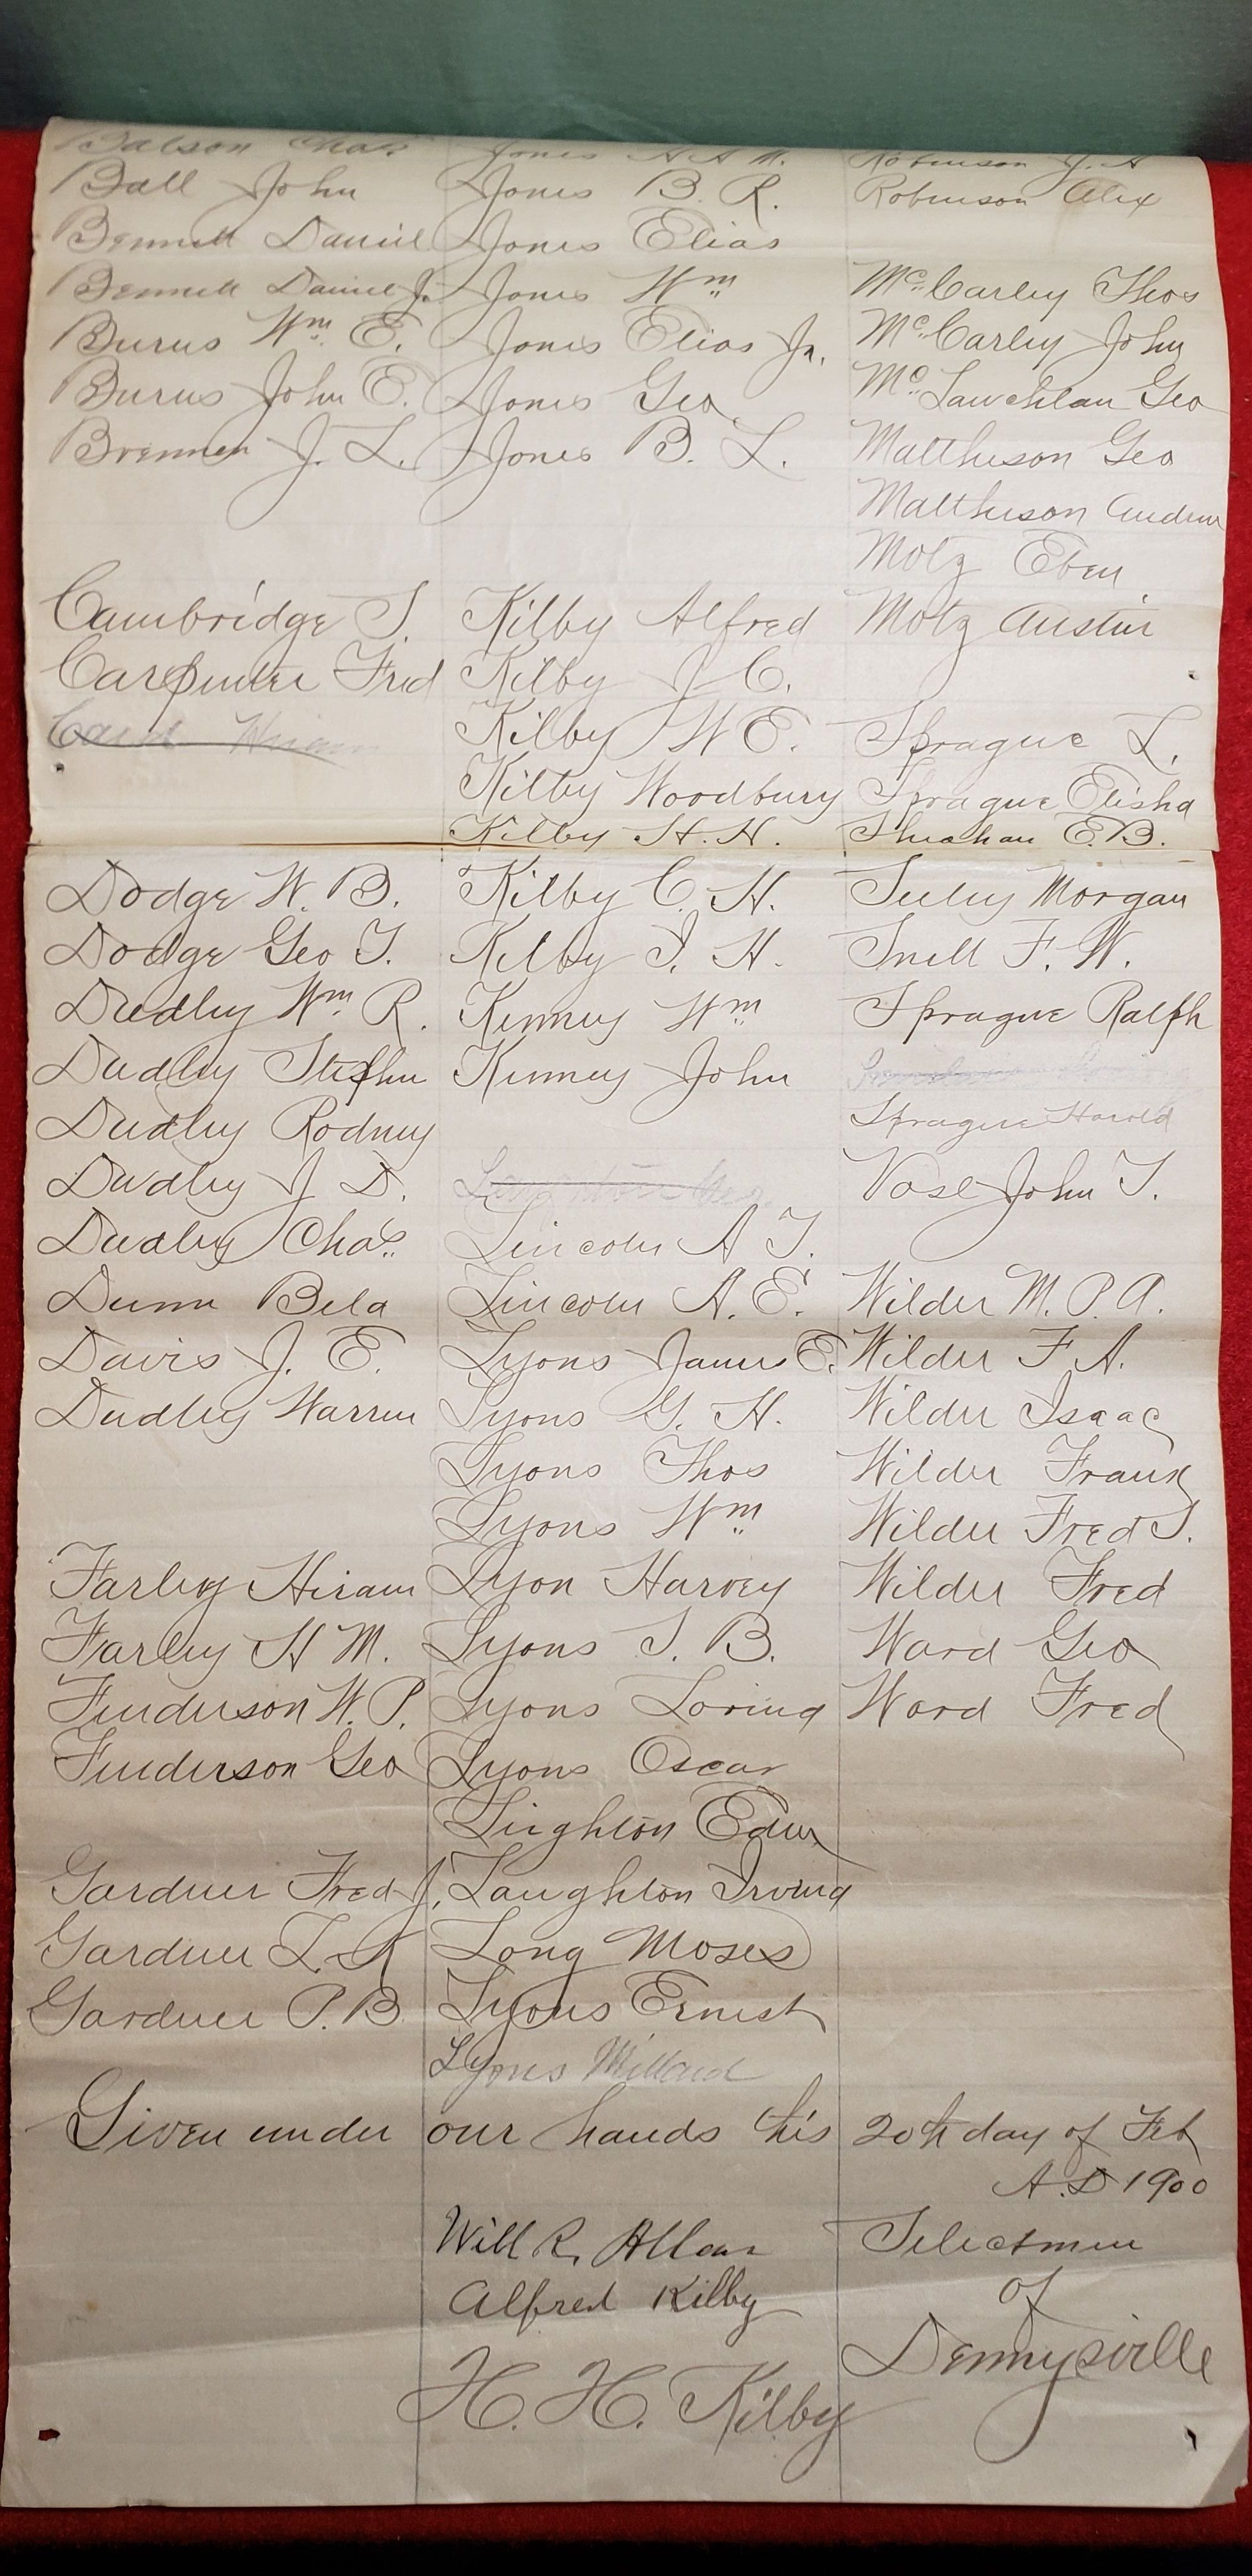 Batson Chas
Ball John
Bennett Daniel
Bennett Daniel Jr
Burns Wm. E.
Burns John E.
Brennen J. L.
Cambridge S.
Carpenter Fred
Card Hiram
Dodge W. B.
Dodge Geo T.
Dudley Wm. R.
Dudley Stephen
Dudley Rodney
Dudley J. D.
Dudley Chas.
Dunn Bela
Davis J. E.
Dudley Warren
Farley Hiram
Farley H M.
Fenderson W. P.
Fenderson Geo
Gardner Fred J.
Gardner L. K
Gardner P. B
Jones
Jones B. R.
Jones Elias
Jones Wm
Jones Elias Jr.
Jones Geo
Jones B. L.
Kilby Alfred
Kilby J C.
Kilby W E.
Kilby Woodbury
Kilby H. H.
Kilby C. H.
Kilby I. H.
Kenney Wm
Kenney John
Lincoln A T.
Lincoln A. E.
Lyons James E.
Lyons G. H.
Lyons Thos
Lyons Wm
Lyon Harvey
Lyons S. B.
Lyons Loring
Lyons Oscar
Leighton Edw
Laughton Irving
Long Moses
Lyons Ernest
Lyons Millard
Robinson J. A
Robinson Alex
Mc.Carley Thos
Mc.Carley John
Mc.Lauchlan Geo
Mattheson Geo
Mattheson Andrew
Motz Eben
Motz Austin
Sprague L.
Sprague Elisha
Sheahan E. B.
Seeley Morgan
Snell F. W.
Sprague Ralph
Sprague Harold
Vose John T.
Wilder M. P. A.
Wilder F A.
Wilder Isaac
Wilder Frank
Wilder Fred S.
Wilder Fred
Ward Geo
Ward Fred
Given under our hands this 20th day of Feb
A.D 1900
Will R. Allan
Alfred Kilby
H. H. Kilby
Selectmen
of
Dennysville